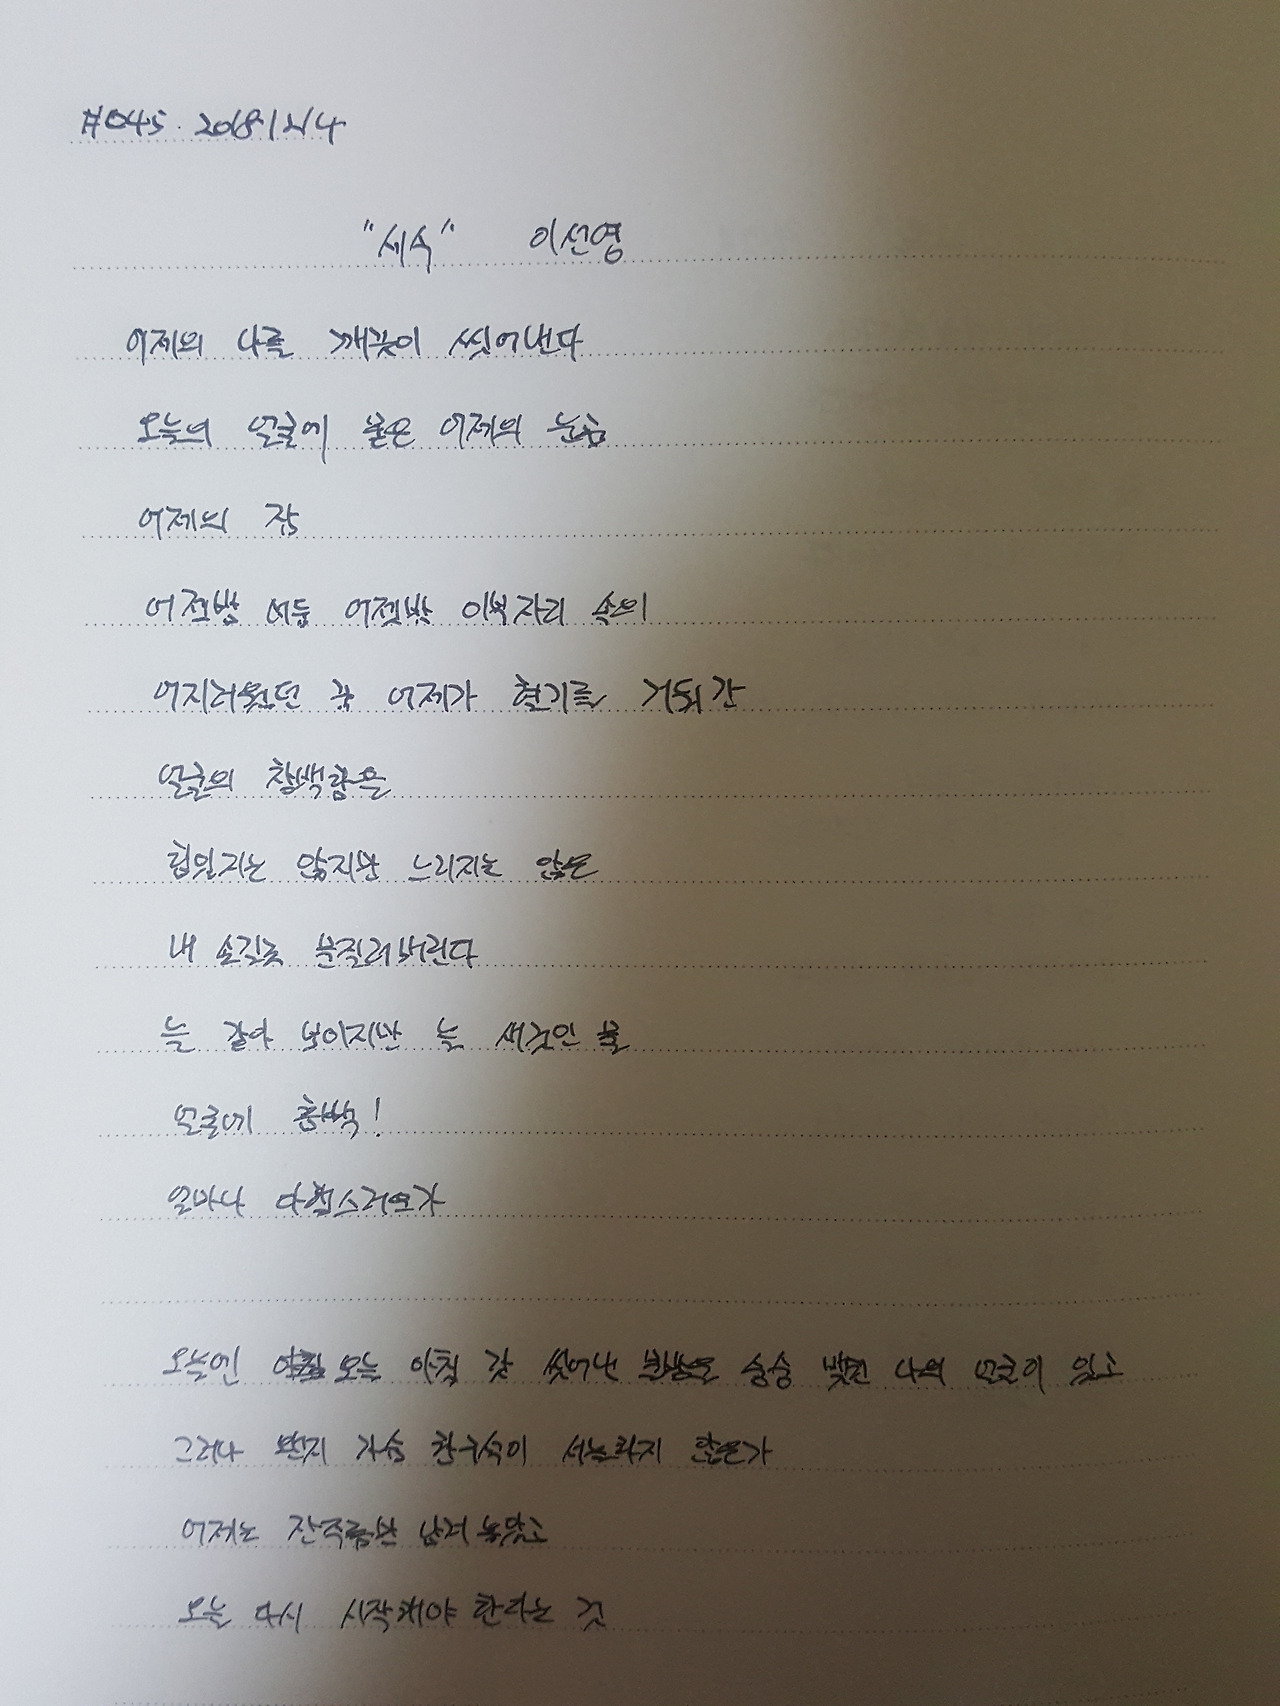 #045. 2018.12.14
"세수" 이선영
어제의 나를 깨끗이 씻어낸다
오늘의 얼굴에 묻은 어제의 눈곱
어제의 잠
어젯밤 어둠 어젯밤 이부자리 속의
어지러웠던 꿈 어제가 혈기를 거둬 간
얼굴의 창백함은
힘있지는 않지만 느리지는 않은
내 손길로 문질러버린다
늘 같아 보이지만 늘 새것인 물
얼굴에 흠뻑!
얼마나 다행스러운가
오늘엔 오늘 아침 갓 씻어낸 물방울 송송 맺힌 나의 얼굴이 있고
그러나 왠지 가슴 한구석이 서늘하지 않은가
어제는 잔주름만 남겨 놓았고
오늘 다시 시작해야 한다는 것